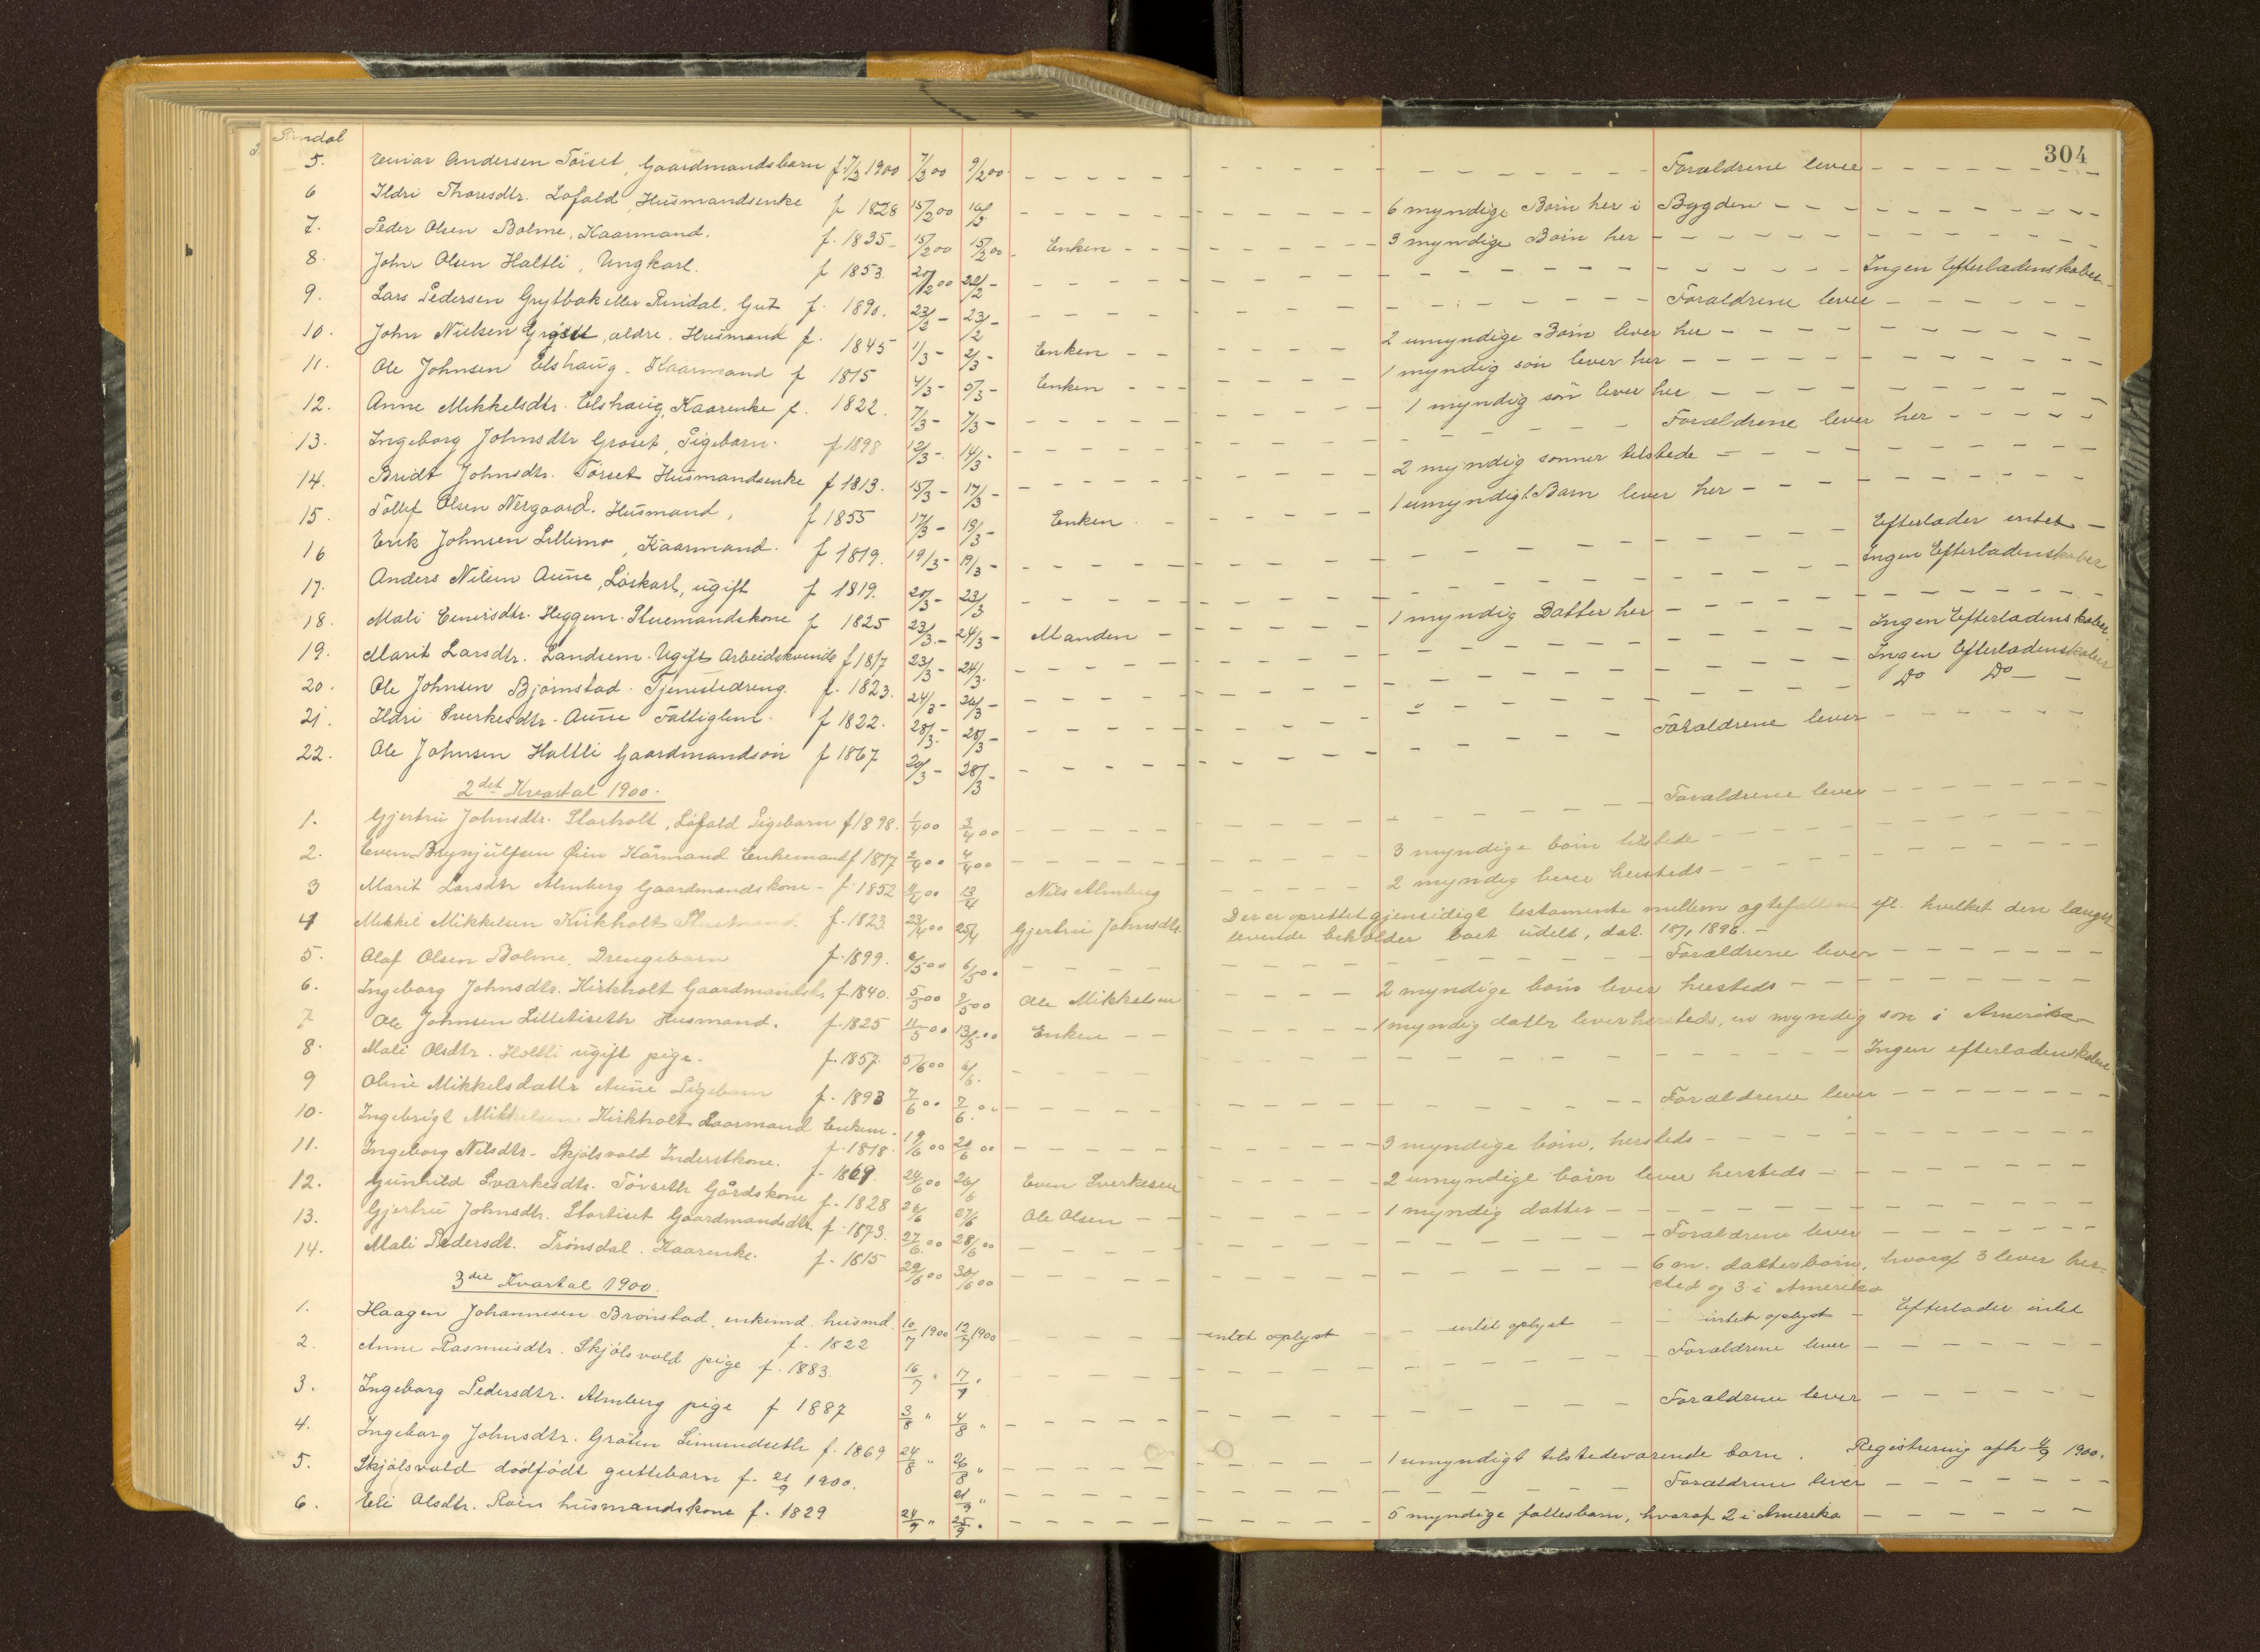 304
Rindal
5. Einar Andersen Törset, Gaardmandsbarn f. 7/2 1900 7/2 00 9/2 00 – – Forældrene lever – –
6 Ildri Thoresdtr. Löfald, Husmandsenke f. 1828 15/2 00 16/2 – – 6 myndige Börn her i Bygden – –
7. Peder Olsen Bolme, Kaarmand. f. 1835 – 15/2 00 15/2 00 – Enken – – 3 myndige Börn her – –
8. John Olsen Haltli, Ungkarl. f 1853. 20/2 00 22/2 – – – Ingen Efterladenskaber –
9. Lars Pedersen Grytbak eller Rindal, Gut f. 1890. 23/2 – 23/2 – – – Forældrene lever – –
10. John Nielsen Gröset, ældre. Husmand f. 1845 1/3 – 2/3 – Enken – – 2 umyndige Börn lever her – –
11. Ole Johnsen Elshaug. Kaarmand f 1815 4/3 – 5/3 – Enken – – 1 myndig sön lever her – –
12. Anne Mikkelsdtr. Elshaug, Kaarenke f. 1822. 7/3 – 7/3 – – – 1 myndig sön lever her – –
13. Ingeborg Johnsdtr Gröset, Pigebarn. f 1898 12/3 – 14/3 – – – Forældrene lever her – –
14. Bridt Johnsdtr. Törset Husmandsenke f 1813. 15/3 – 17/3 – – – 2 myndig sönner tilstede – –
15. Tollef Olsen Nergaard. Husmand, f 1855 17/3 – 19/3 – Enken – – 1 umyndigt Barn lever her – –
16 Erik Johnsen Lillemo, Kaarmand. f 1819. 19/3 – 19/3 – – – Efterlader intet –
17. Anders Nilsen Aune, Löskarl, ugift f 1819. 20/3 – 23/3 – – Ingen Efterladenskaber
18. Mali Einersdtr. Heggem. Stuemandskone f 1825 23/3 – 24/3 – Manden – – 1 myndig Datter her – –
19. Marit Larsdtr. Landsem. Ugift Arbeidskvinde f 1817 23/3 – 24/3. – – Ingen Efterladenskaber.
20. Ole Johnsen Björnstad. Tjenestedreng. f. 1823. 24/3 – 26/3 – – – Ingen Efterladenskaber
21. Ildri Sverkesdtr. Aune Fattiglem. f 1822. 28/3. – 28/3 – – – Do Do –
22. Ole Johnsen Haltli Gaardmandsön f 1867 20/3 – 28/3 – – – Forældrene lever – –
2det Kvartal 1900.
1. Gjertru Johnsdtr. Storholt, Löfald Pigebarn f 1898. 1/4 00 3/4 00 – – Forældrene lever – –
2. Even Brynjulfsen Öien Kårmand Enkemand f 1817 2/4 00 4/4 00 – – 3 myndige börn tilstede – –
3 Marit Larsdtr Almberg Gaardmandskone – f. 1852 11/4 00 13/4 Nils Almberg – – 2 myndig lever hersteds – –
4 Mikkel Mikkelsen Kirkholt f. 1823. 23/4 00 25/4 Gjertru Johnsdtr. Der er oprettet gjensidigt testamente mellem ægtefællene efl. hvilket den længst
levende beholder boet udelt, dat. 18/1 1898. –
5. Olaf Olsen Bolme. Drengebarn f. 1899. 6/5 00 6/5 00 – – Forældrene lever – –
6. Ingeborg Johnsdtr. Kirkholt Gaardmandsk. f 1840. 5/5 00 7/5 00 Ole Mikkelsen – – 2 myndige börn lever hersteds – –
7 Ole Johnsen Lilletiseth Husmand. f. 1825 11/5 00 13/5 00 Enken – – 1 myndig datter lever hersteds, en myndig sön i Amerika –
8. Mali Olsdtr. Haltli ugift pige. f. 1857. 5/6 00 6/6. – – Ingen efterladenskaber.
9 Oline Mikkelsdattr Aune Pigebarn f. 1893 7/6 00 7/6 00 – – Forældrene lever – –
10. Ingebrigt Mikkelsen. Kirkholt Kaarmand Enkem. f. 1818 19/6 00 20/6 00 – – 3 myndige börn, hersteds – –
11. Ingeborg Nilsdtr. Skjölsvold Inderstkone. f. 1869. 24/6 00 26/6 Even Sverkesen – – 2 umyndige börn lever hersteds – –
12. Gunhild Sverkesdtr. Törseth Gårdskone f. 1828 26/6 27/6 Ole Olsen – – 1 myndig datter – –
13. Gjertru Johnsdtr. Stortiset Gaardmandsdtr f. 1873. 27/6 00 28/6 00 – – Forældrene lever – –
14. Mali Pedersdt. Trönsdal. Kaarenke. f. 1815 29/6 00 30/6 00 – – 6 m. datterbörn, hvoraf 3 lever her-
sted og 3 i Amerika
3die Kvartal 1900.
1. Haagen Johannesen Brönstad, enkemd. husmd. f. 1822 10/7 1900 12/7 1900 – – intet oplyst – – intet oplyst – – intet oplyst – Efterlader intet
2. Anne Rasmusdtr. Skjölsvold pige f. 1883. 16/7 " 17/7 " – – Forældrene lever – –
3. Ingeborg Pedersdtr. Almberg pige f 1887 3/8 " 4/8 " – – Forældrene lever – –
4. Ingeborg Johnsdtr. Gråten Simundseth f. 1869 24/8 " 26/8 " – – 1 umyndigt tilstedeværende barn. Registrering afh 4/9 1900.
5. Skjölsvold dödfödt guttebarn f. 21/9 1900. 21/9 " – – Forældrene lever – –
6. Eli Olsdtr. Röen husmandskone f. 1829 24/9 " 25/9 " – – 5 myndige fællesbarn, hvoraf 2 i Amerika – –